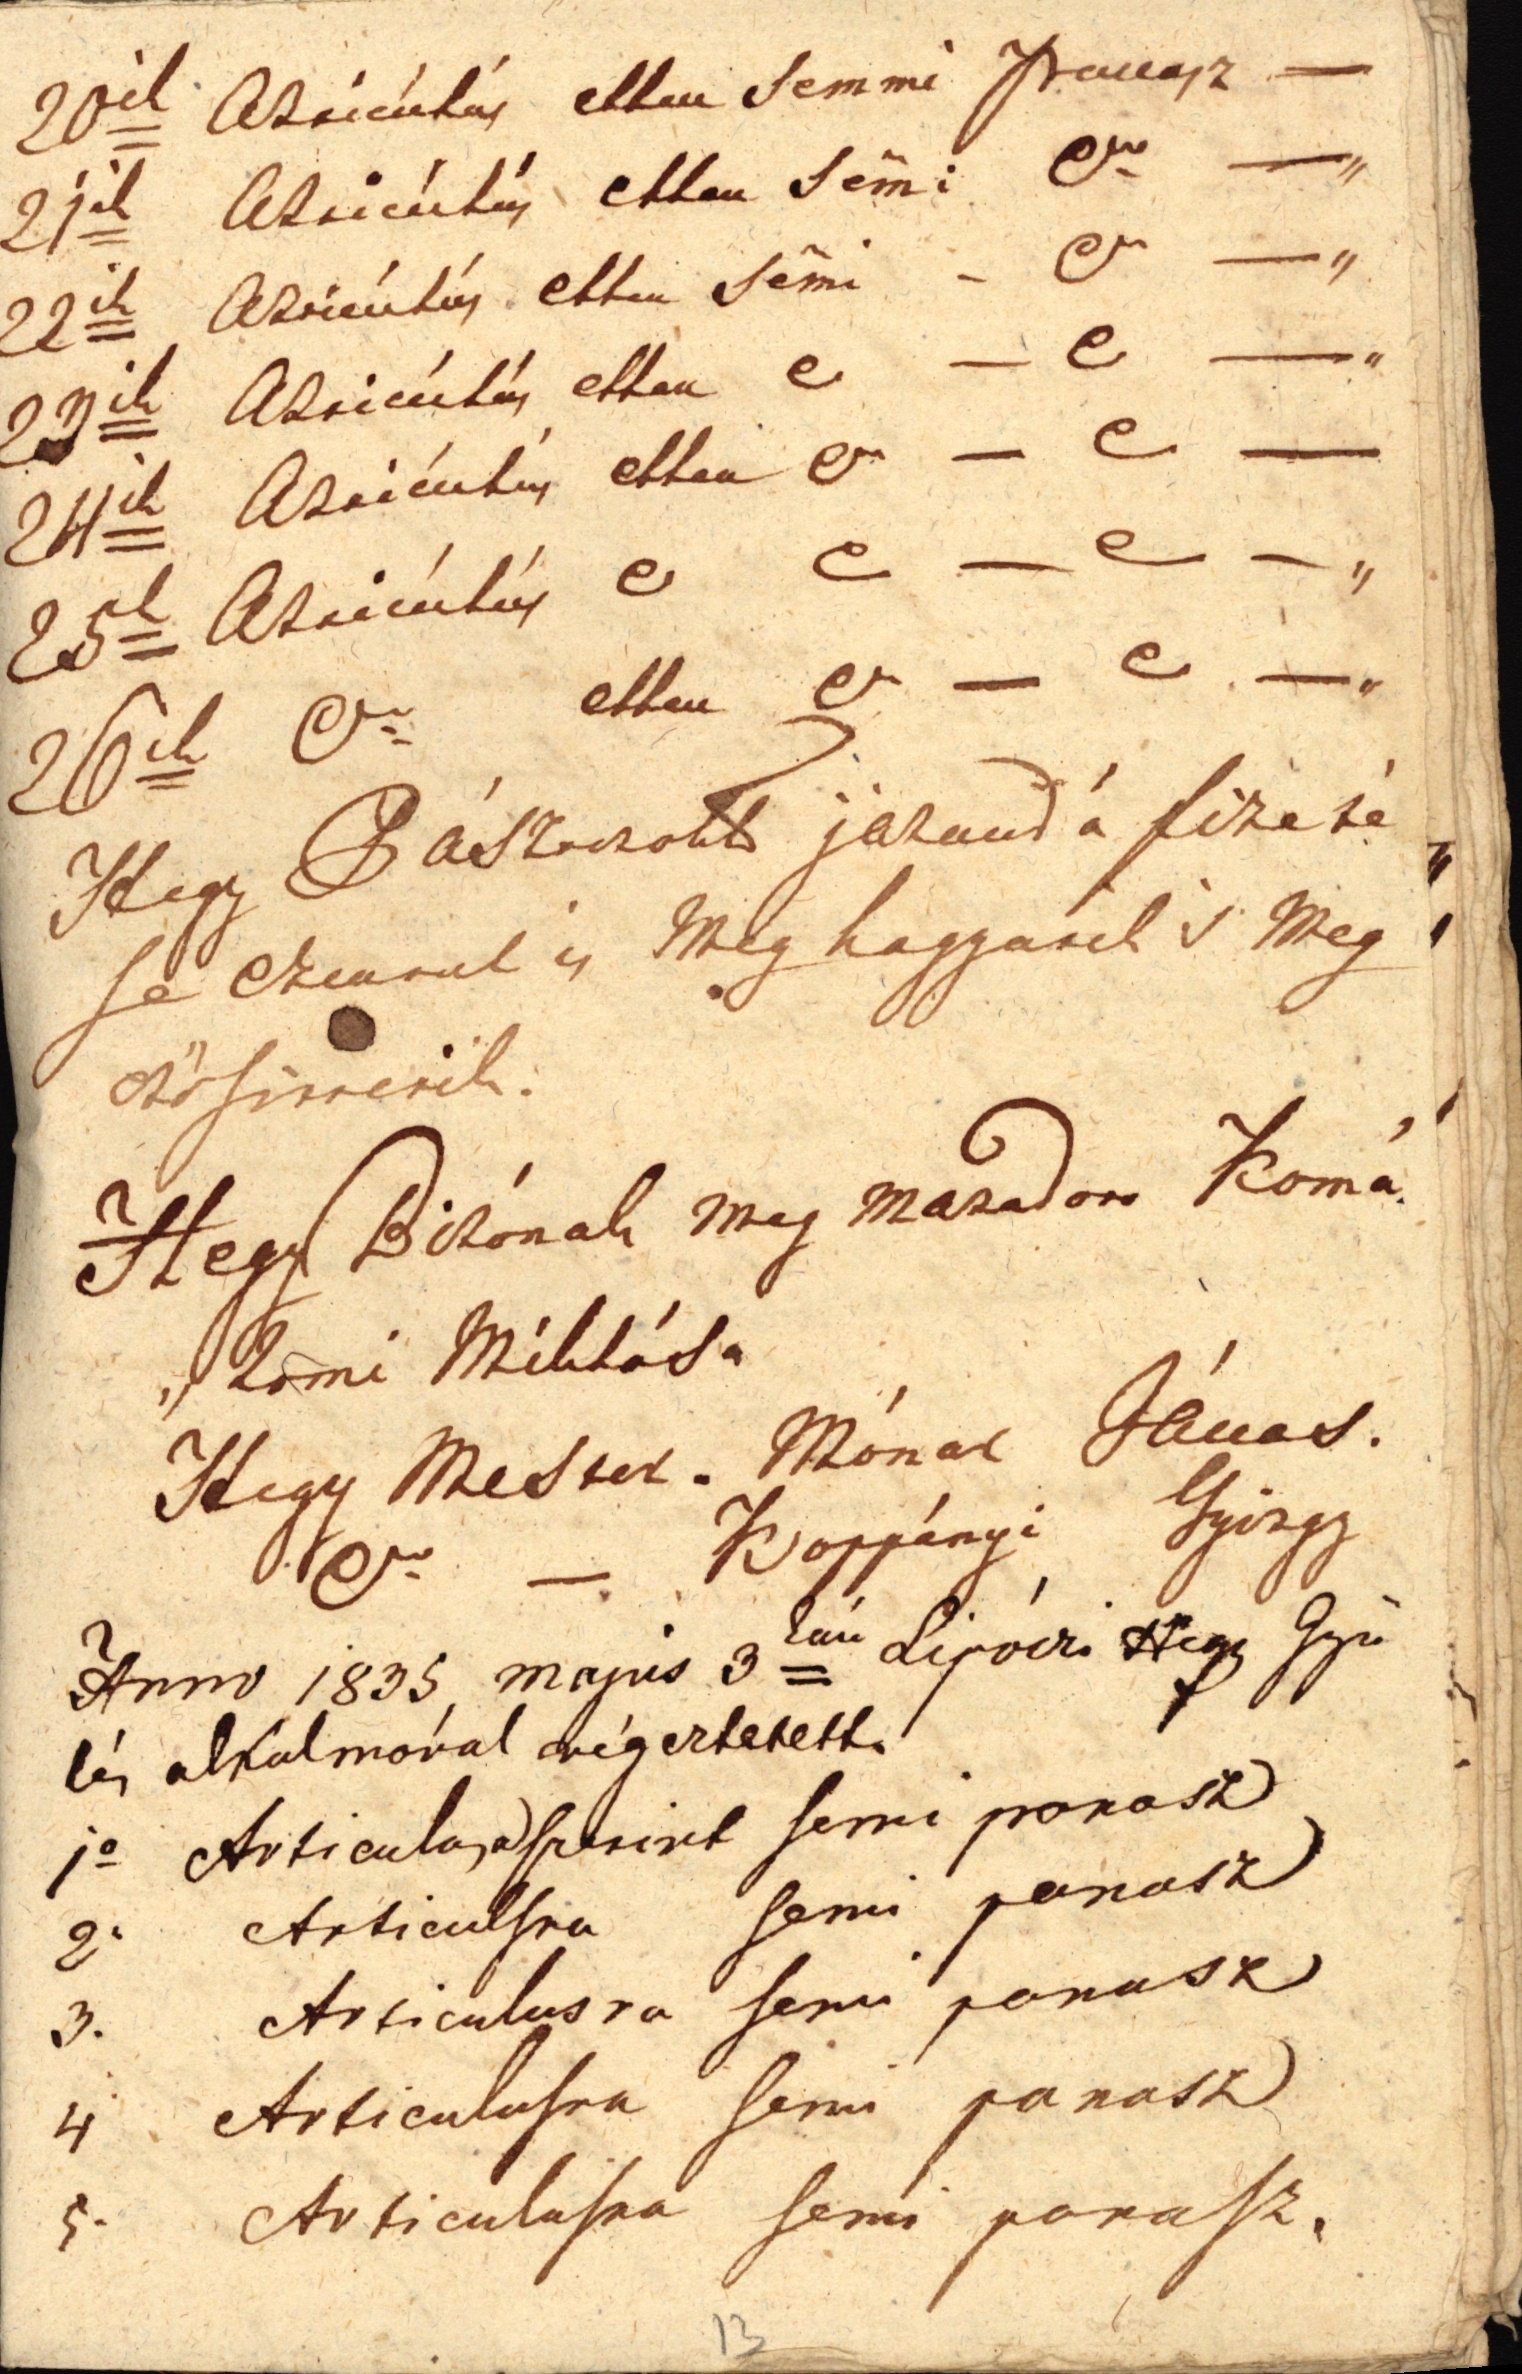 20ik Aticulus ellen Semmi Pranasz —
21ik Aticulus ellen Sem̃i — „
22ik Aticulus ellen Sem̃i - — „
23ik Aticulus ellen — — „
24ik Aticulus ellen — —
25ik Aticulus — — „
26ik ellen — — „
Hegy Pásztorok jázandá fizeté „
se Meg hagyatik 's Meg
erősittetik.
Hegy Birónak meg maradott Komá
„ romi Miklós.
Hegy Mester. Mónár János.
— Koppányi György
Anno 1835 május 3kán Lipóczi Hegy Gyü
lés alkalmával végeztetett.
1o Articulus szerint semi panasz
2. Articulsra semi panasz
3. Articulusra semi panasz
4 Articulusra semi panasz
5. Articulusra semi panasz.
13